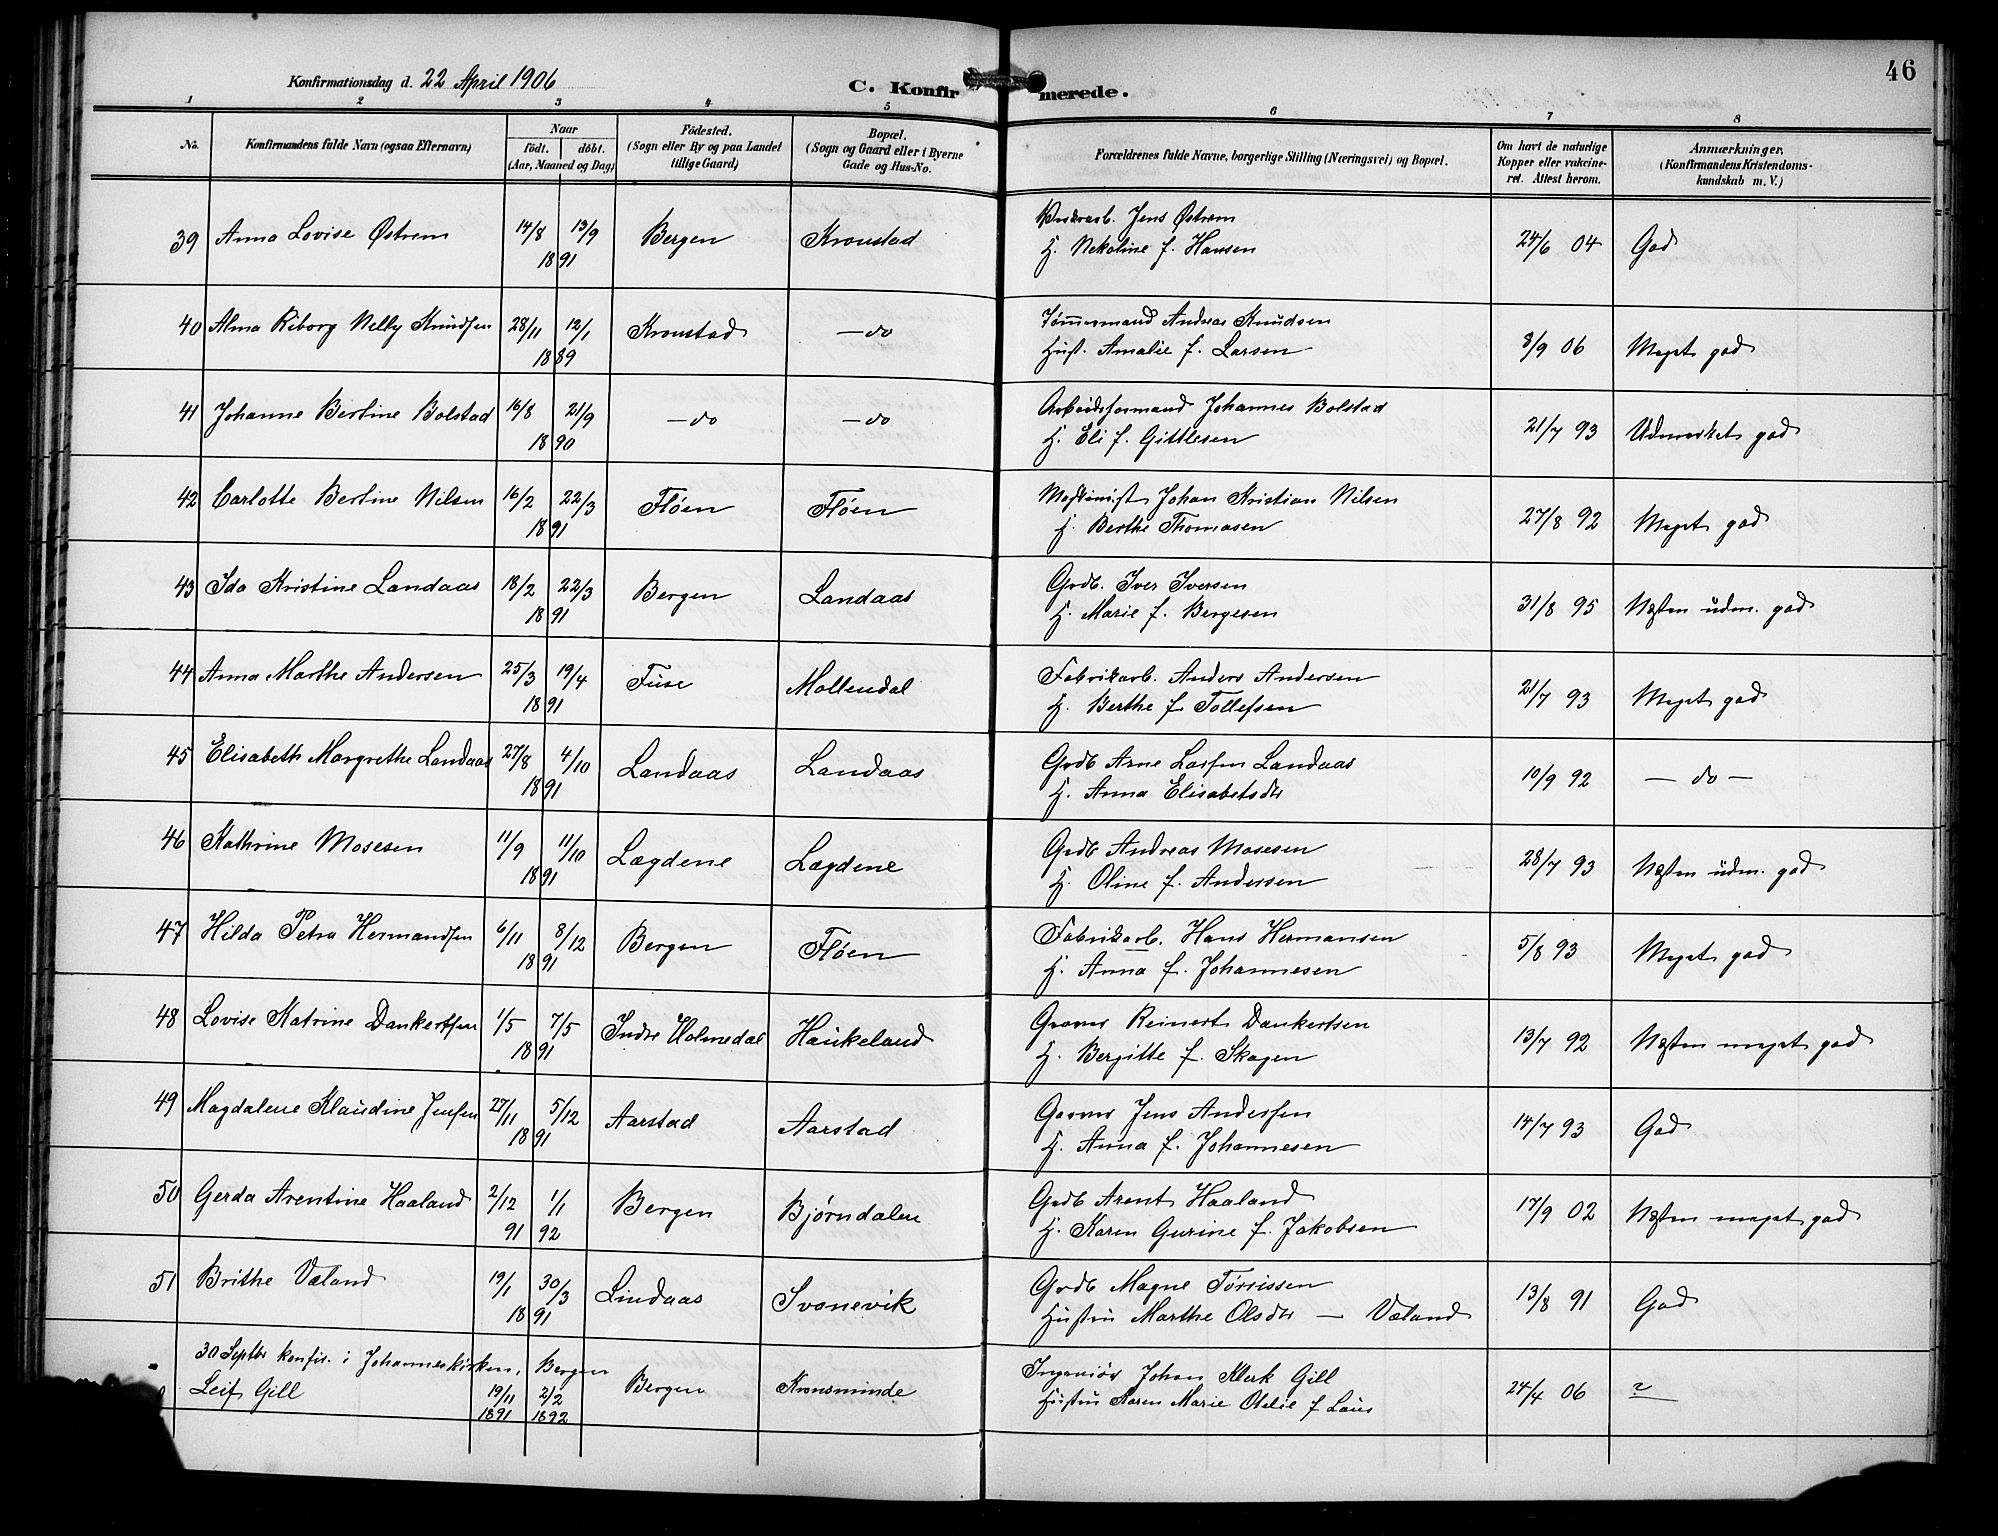 46
Konfirmationsdag d. 22 April 1906
C. Konfirmerede.
1 2 3 4 5 6 7 8
No. Konfirmandens fulde Navn (ogsaa Efternavn) Naar født. døbt. (Aar, Maaned og Dag) Fødested. (Sogn eller By og paa Landet tillige Gaard) Bopæl. (Sogn og Gaard eller i Byerne Gade og Hus-No. Forældrenes fulde Navne, borgerlige Stilling (Næringsvei) og Bopæl. Om havt de naturlige Kopper eller vakcineret. Attest herom. Anmærkninger. (Konfirmandens Kristendomskundskab m. V.)
39 Anna Lovise Østrem 14/8 13/9 Bergen Kronstad Jens Østrem 24/6 04 God
1891 H. Nekoline f. Hansen
40 Alma Riborg Nelly Knudsen 28/11 12/1 Kronstad —do Tømmermand Andreas Knudsen 8/9 06 Meget god
1889 Hust. Amalie f. Larsen
41 Johanne Bertine Bolstad 16/8 21/9 —do —do Arbeidsformand Johannes Bolstad 21/7 93 Udmerket god
1890 H. Eli f. Gittlesen
42 Carlotte Bertine Nilsen 16/2 22/3 Fløen Fløen Maskinist Johan Kristian Nilsen 27/8 92 Meget god
1891 H. Berthe Thomasen
43 Ida Kristine Landaas 18/2 22/3 Bergen Landaas Grdb. Iver Iversen 31/8 95 Næsten udm. god
1891 H. Marie f. Bergesen
44 Anna Marthe Andersen 25/3 19/4 Fuse Møllendal Fabrikarb. Anders Andersen 21/7 93 Meget god
1891 H. Berthe f. Tollefsen
45 Elisabeth Margrethe Landaas 27/8 4/10 Landaas Landaas Grdb Arne Larsen Landaas 10/9 92 — do —
1891 H. Anna Elisabetsdtr
46 Kathrine Mosesen 11/9 11/10 Lægdene Lægdene Grdb Andreas Mosesen 28/7 93 Næsten udm. god
1891 H. Oline f. Andersen
47 Hilda Petra Hermandsen 6/11 8/12 Bergen Fløen Fabrikarb. Hans Hermansen 5/8 93 Meget god
1891 H. Anna f. Johannesen
48 Lovise Katrine Dankertsen 1/5 7/5 Indre Holmedal Haukeland Garver Reinert Dankertsen 13/7 92 Næsten meget god
1891 H. Bergitte f. Skagen
49 Magdalene Klaudine Jensen 27/11 5/12 Aarstad Aarstad Garver Jens Andersen 14/7 93 God
1891 H. Anna f. Johannesen
50 Gerda Arentine Haaland 2/12 1/1 Bergen Bjørndalen Grdb Arent Haaland 17/9 02 Næsten meget god
91 92 H. Karen Gurine f. Jakobsen
51 Brithe Væland 19/1 30/3 Lindaas Svanevik Grdb Magne Tørrissen 13/8 91 God
1891 Hustru Marthe Olsdtr — Væland
30 Septbr konfir. i Johanneskirken, Bergen
Leif Gill 19/11 1891 2/2 1892 Bergen Kronsminde Ingeniør Johan Klerk Gill 24/4 06 ?
Hustru Karen Marie Otelie f Laus